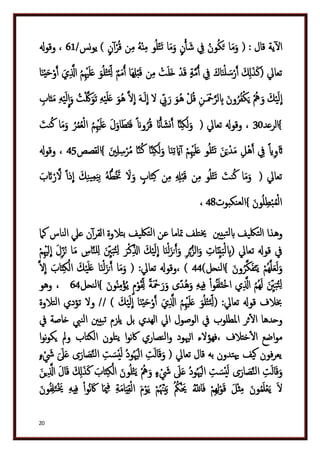 الآية قال : ( وَمَا تَكُونُ فِي شَأْنٍ وَمَا تَتْلُو مِنْهُ مِن قُرْآنٍ ) يونس/61 ، وقوله
تعالي (كَذَٰلِكَ أَرْسَلْنَاكَ فِي أُمَّةٍ قَدْ خَلَتْ مِن قَبْلِهَا أُمَمٌ لِّتَتْلُوَ عَلَيْهِمُ الَّذِي أَوْحَيْنَا
إِلَيْكَ وَهُمْ يَكْفُرُونَ بِالرَّحْمَٰنِ قُلْ هُوَ رَبِّي لَا إِلَٰهَ إِلَّا هُوَ عَلَيْهِ تَوَكَّلْتُ وَإِلَيْهِ مَتَابِ
}الرعد30 ، وقوله تعالي ( وَلَٰكِنَّا أَنشَأْنَا قُرُوناً فَتَطَاوَلَ عَلَيْهِمُ الْعُمُرُ وَمَا كُنتَ
ثَاوِياً فِي أَهْلِ مَدْيَنَ تَتْلُو عَلَيْهِمْ آيَاتِنَا وَلَٰكِنَّا كُنَّا مُرْسِلِينَ }القصص45 ، وقوله
تعالي ( وَمَا كُنتَ تَتْلُو مِن قَبْلِهِ مِن كِتَابٍ وَلَا تَخُطُّهُ بِيَمِينِكَ إِذاً لَّارْتَابَ
الْمُبْطِلُونَ }العنكبوت48 ،
وهذا التكليف بالتبيين يختلف تماما عن التكليف بتلاوة القرآن علي الناس كما
في قوله تعالي (بِالْبَيِّنَاتِ وَالزُّبُرِ وَأَنزَلْنَا إِلَيْكَ الذِّكْرَ لِتُبَيِّنَ لِلنَّاسِ مَا نُزِّلَ إِلَيْهِمْ
وَلَعَلَّهُمْ يَتَفَكَّرُونَ }النحل(44) ،وقوله تعالي: ( وَمَا أَنزَلْنَا عَلَيْكَ الْكِتَابَ إِلَّا
لِتُبَيِّنَ لَهُمُ الَّذِي اخْتَلَفُواْ فِيهِ وَهُدًى وَرَحْمَةً لِّقَوْمٍ يُؤْمِنُونَ }النحل64 ، وهو
بخلاف قوله تعالي: (لِّتَتْلُوَ عَلَيْهِمُ الَّذِي أَوْحَيْنَا إِلَيْكَ ) // ولا تؤدي التلاوة
وحدها الأثر المطلوب في الوصول الي الهدي بل يلزم تبيين النبي خاصة في
مواضع الأختلاف ،فهؤلاء اليهود والنصاري كانوا يتلون الكتاب ولم يكونوا
يعرفون كيف يهتدون به قال تعالي ( وَقَالَتِ الْيَهُودُ لَيْسَتِ النَّصَارَى عَلَىَ شَيْءٍ
وَقَالَتِ النَّصَارَى لَيْسَتِ الْيَهُودُ عَلَى شَيْءٍ وَهُمْ يَتْلُونَ الْكِتَابَ كَذَلِكَ قَالَ الَّذِينَ
لاَ يَعْلَمُونَ مِثْلَ قَوْلِهِمْ فَاللّهُ يَحْكُمُ بَيْنَهُمْ يَوْمَ الْقِيَامَةِ فِيمَا كَانُواْ فِيهِ يَخْتَلِفُونَ
20